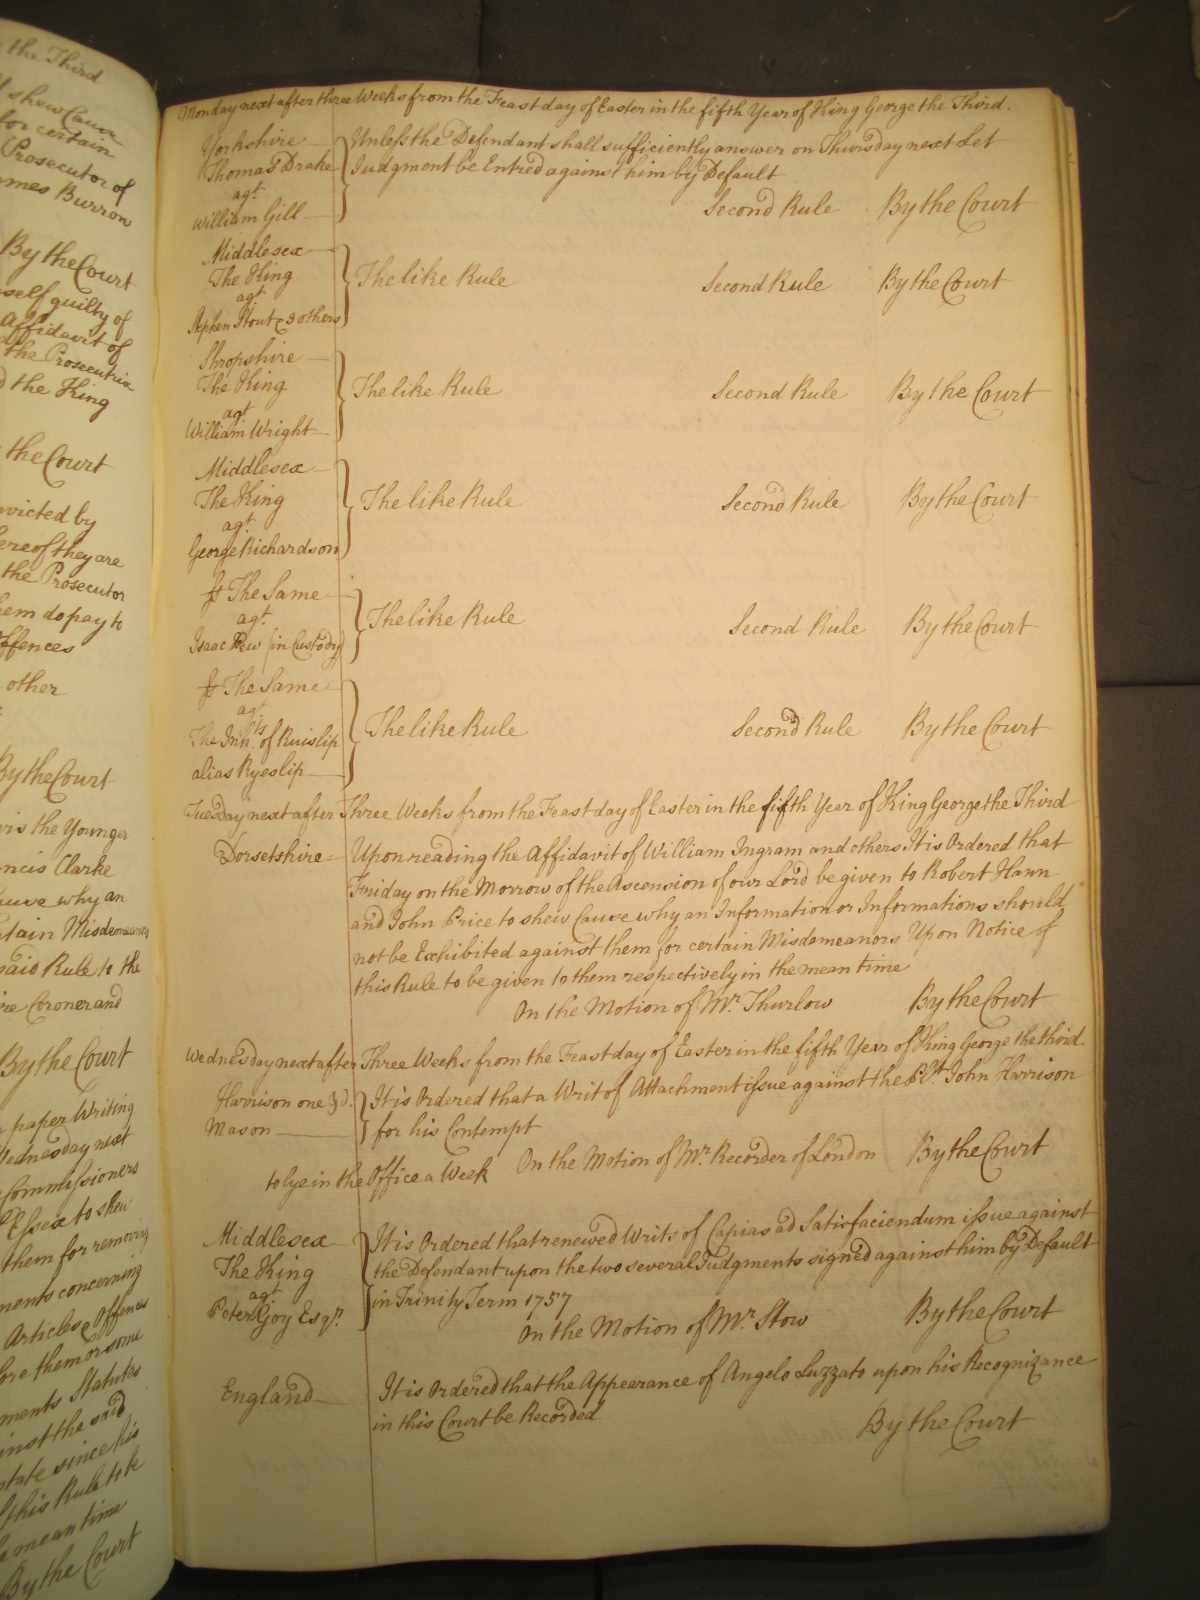 the Third
shew Cause
for certain
Prosecutor of
James Burron
By the Court
self guilty of
Affidavit of
the Prosecutrix
the King
the Court
victed by
ereof they are
the Prosecutor
hem do pay to
Offences
other
By the Court
the Younger
ncis Clarke
ause why an
tain Misdemeanors
said Rule to the
ire Coroner and
By the Court
paper Writing
Wednesday next
Commissioners
Essex to shew
them for removing
ments concerning
Articles & Offences
ore them or some
ments Statutes
inst the said
state since his
this Rule to be
mean time
By the Court
Monday next after three Weeks from the Feast day of Easter in the fifth Year of King George the Third.
Yorkshire
Thomas Drake
agt.
William Gill
Unless the Defendant shall sufficiently answer on Thursday next Let
Judgment be Entred against him by Default
Second Rule By the Court
Middlesex
The King
agt.
Stephen Stout & 3 others
The like Rule Second Rule By the Court
Shropshire
The King
agt
William Wright
The like Rule Second Rule By the Court
Middlesex
The King
agt.
George Richardson
The like Rule Second Rule By the Court
The Same
agt.
Isaac Pew (in Custody)
The like Rule Second Rule By the Court
The Same
agt.
The Inhts. of Ruislip
alias Ryeslip
The like Rule Second Rule By the Court
Tuesday next after Three Weeks from the Feast day of Easter in the fifth Year of King George the Third
Dorsetshire Upon reading the Affidavit of William Ingram and others It is Ordered that
Friday on the Morrow of the Ascension of our Lord be given to Robert Hann
and John Price to shew Cause why an Information or Informations should
not be Exhibited against them for certain Misdemeanors Upon Notice of
this Rule to be given to them respectively in the mean time
On the Motion of Mr. Thurlow By the Court
Wednesday next after Three Weeks from the Feast day of Easter in the fifth Year of King George the third
Harrison one &c.
Mason
It is Ordered that a Writ of Attachment issue against the Plt. John Harrison
for his Contempt
On the Motion of Mr. Recorder of London By the Court
to lye in the Office a Week
Middlesex
The King
agt.
Peter Goy Esqr.
It is Ordered that renewed Writs of Capias ad Satisfaciendum issue against
the Defendant upon the two several Judgments signed against him by Default
in Trinity Term 1757
On the Motion of Mr. Stow By the Court
England It is Ordered that the Appearance of Angelo Luzzato upon his Recognizance
in this Court be Recorded.
By the Court